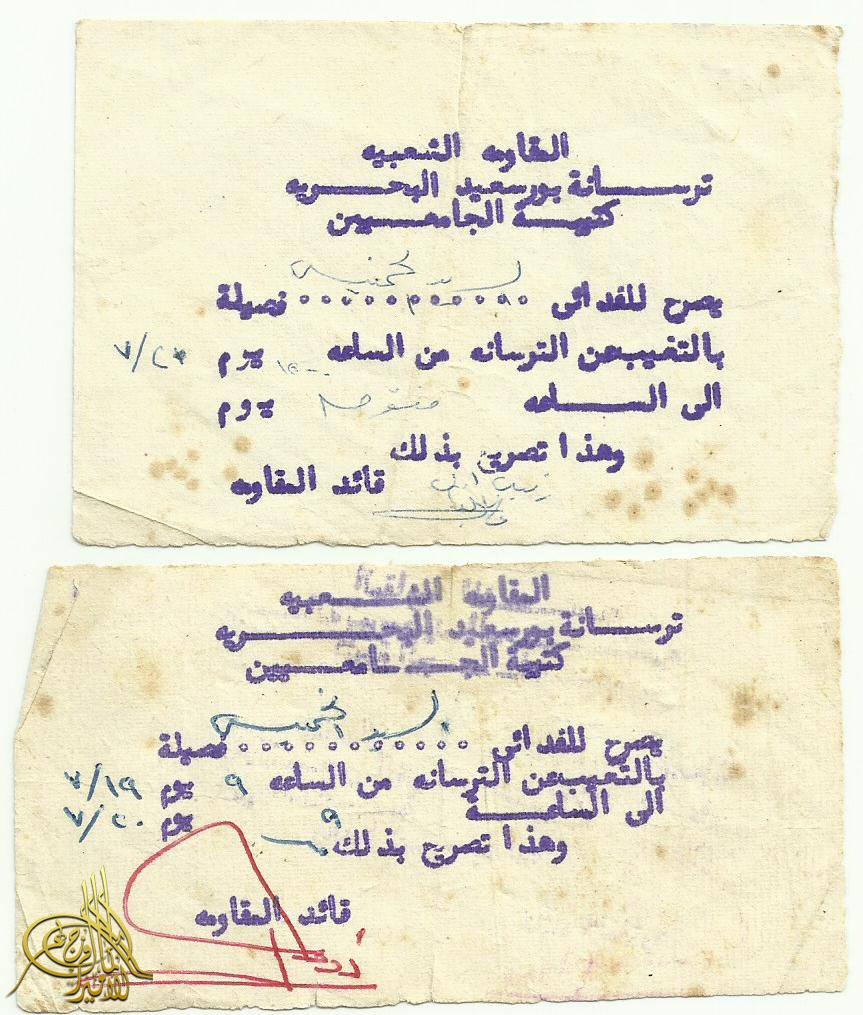 المقاومه الشعبيه
ترسانة بورسعيد البحريه
كتيبة الجامعيين
يصرح للفدائى السيد فصيلة
بالتغيب عن الترسانه من الساعه يوم ٧/٢٠
الى الساعه مفتوحه يوم
وهذا تصريح بذلك
قائد المقاومه
المقاومة الشعبيه
ترسانة بورسعيد البحريه
كتيبة الجامعيين
يصرح للفدائى السيد فصيلة
بالتغيب عن الترسانه من الساعه ٩ يوم ٧/١٩
الى الساعة ٩ يوم ٧/٢٠
وهذا تصريح بذلك
قائد المقاومه